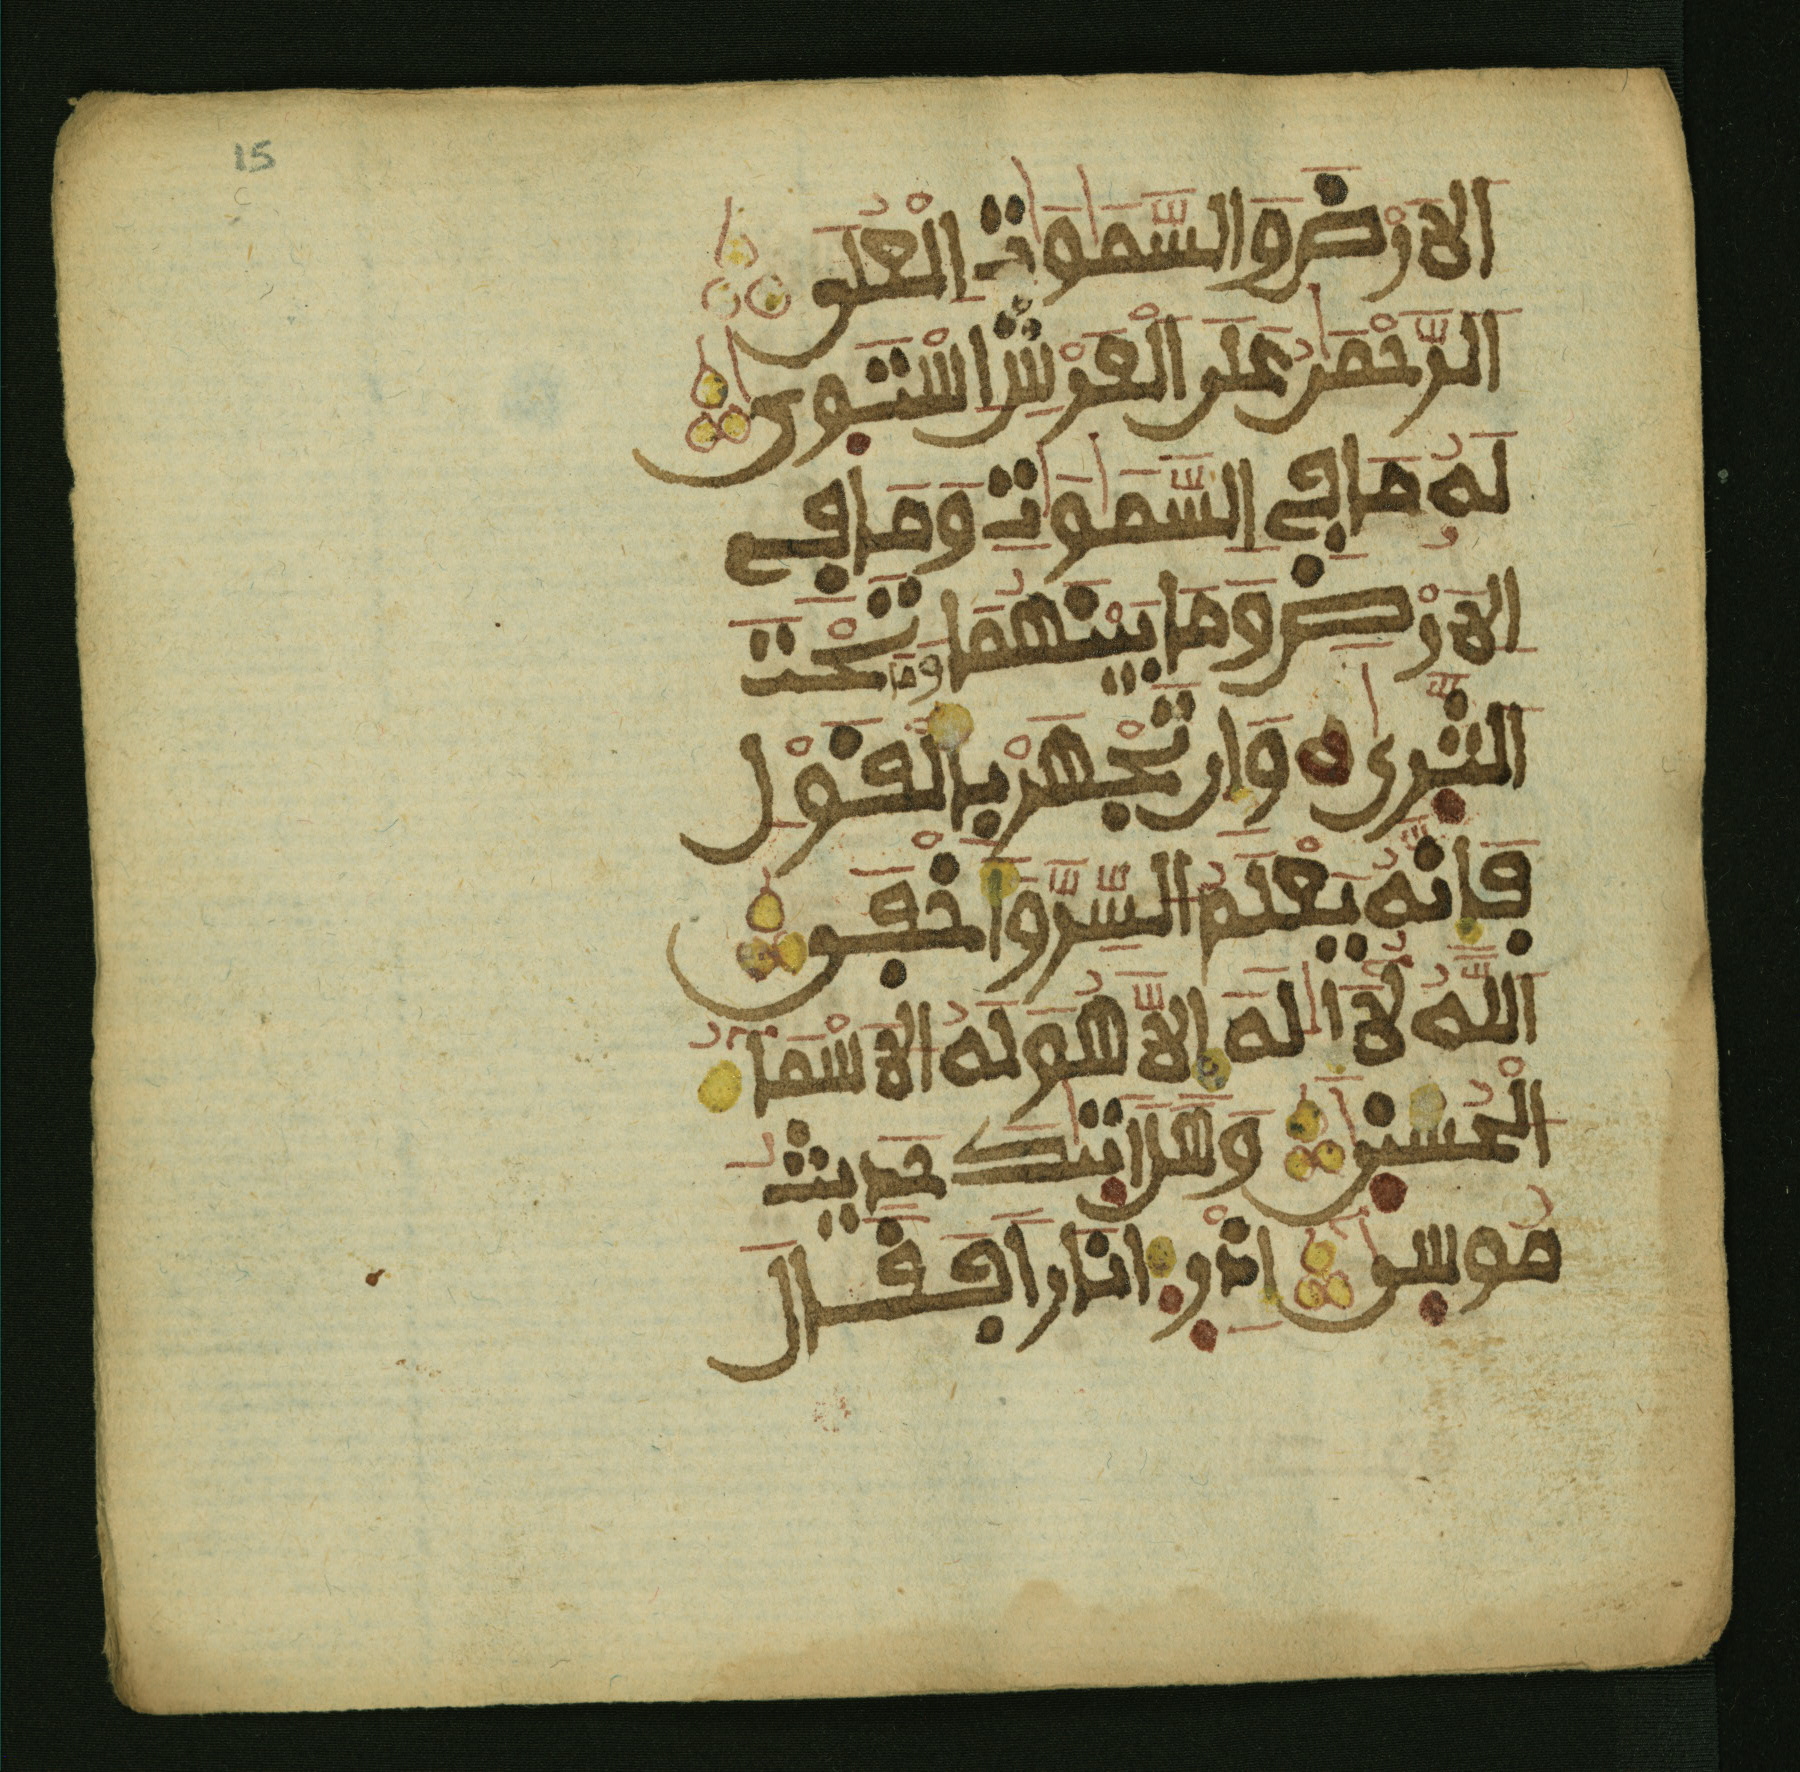 15
الاَرْضَ وَالسَّمٰوٰتِ الْعُلَى
الرَّحْمَٰنُ عَلَى الْعَرْشِ اسْتَوٜىٰ
لَهُۥ مَا فِے السَّمٰوٰتِ وَمَا فِے
الاَرْضِ وَمَا بَيْنَهُمَا وَمَا تَحْتَ
الثَّرٜىٰ ه وَإِن تَجْهَرْ بِالْقَوْلِ
فَإِنَّهُۥ يَعْلَمُ السِّرَّ وَأَخْفَى
اللَّهُ لَآ إِلَٰهَ إِلَّا هُوَ لَهُ الاَسْمَآءُ
الْحُسْنٜىٰ وَهَلَ اَتٜىٰكَ حَدِيثُ
مُوسٜىٰٓ إِذْ رٜءٜا نَارًا فَقَالَ